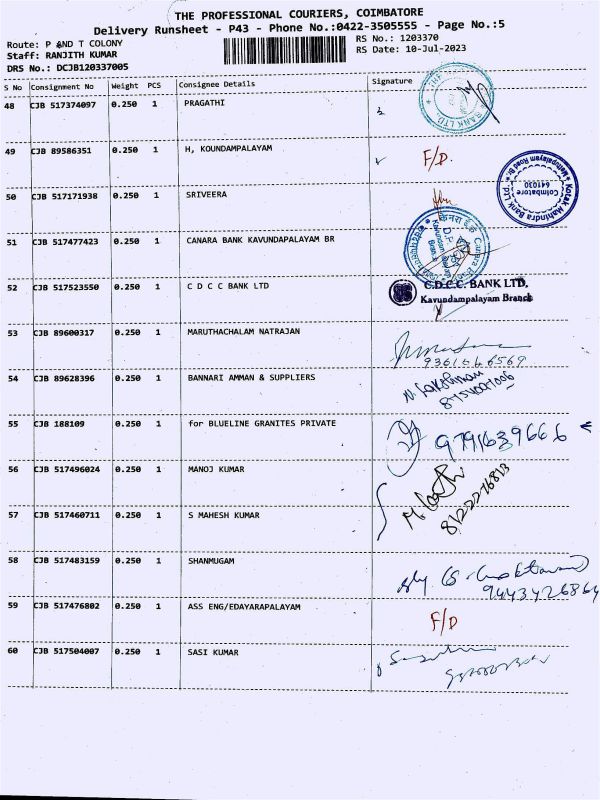 THE PROFESSIONAL COURIERS, COIMBATORE
Delivery Runsheet - P43 - Phone No.:0422-3505555 - Page No.:5
Route: P AND T COLONY
RS No.: 1203370
Staff: RANJITH KUMAR
RS Date: 10-Jul-2023
DRS No.: DCJB120337005
S No Consignment No Weight PCS Consignee Details Signature
48 CJB 517374097 0.250 1 PRAGATHI
BANK LTD
49 CJB 89586351 0.250 1 H, KOUNDAMPALAYAM F/D.
Kotak Mahindra Bank Ltd
Mettupalayam Road Br.
Coimbatore
641030
50 CJB 517171938 0.250 1 SRIVEERA
51 CJB 517477423 0.250 1 CANARA BANK KAVUNDAPALAYAM BR
केनरा बैंक Canara Bank
52 CJB 517523550 0.250 1 C D C C BANK LTD C.D.C.C. BANK LTD.
Kavundampalayam Branch
53 CJB 89600317 0.250 1 MARUTHACHALAM NATRAJAN
54 CJB 89628396 0.250 1 BANNARI AMMAN & SUPPLIERS
55 CJB 188109 0.250 1 for BLUELINE GRANITES PRIVATE 9791639666
56 CJB 517496024 0.250 1 MANOJ KUMAR
8122276813
57 CJB 517460711 0.250 1 S MAHESH KUMAR
58 CJB 517483159 0.250 1 SHANMUGAM
9443426864
59 CJB 517476802 0.250 1 ASS ENG/EDAYARAPALAYAM F/D
60 CJB 517504007 0.250 1 SASI KUMAR